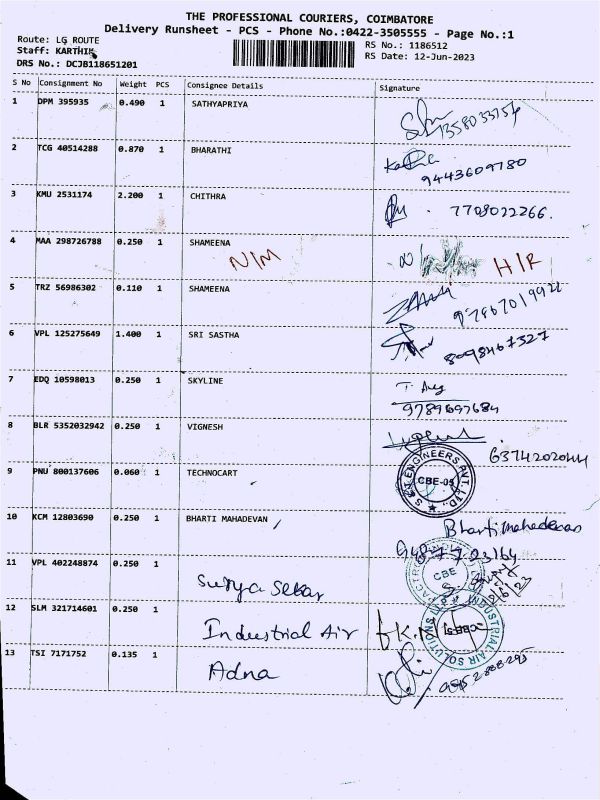 THE PROFESSIONAL COURIERS, COIMBATORE
Delivery Runsheet - PCS - Phone No.:0422-3505555 - Page No.:1
Route: LG ROUTE
Staff: KARTHIK
DRS No.: DCJB118651201
RS No.: 1186512
RS Date: 12-Jun-2023
S No Consignment No Weight PCS Consignee Details Signature
1 DPM 395935 0.490 1 SATHYAPRIYA
2 TCG 40514288 0.870 1 BHARATHI
9443609780
3 KMU 2531174 2.200 1 CHITHRA
7708022266.
4 MAA 298726788 0.250 1 SHAMEENA
N/M H/R
5 TRZ 56986302 0.110 1 SHAMEENA
9786701992
6 VPL 125275649 1.400 1 SRI SASTHA
8098467327
7 EDQ 10598013 0.250 1 SKYLINE
9789697684
8 BLR 5352032942 0.250 1 VIGNESH
6374202044
9 PNU 800137606 0.060 1 TECHNOCART
ENGINEERS PVT. LTD. CBE-05
10 KCM 12803690 0.250 1 BHARTI MAHADEVAN
Bharti mahadevan
11 VPL 402248874 0.250 1 Surya Sekar
CBE
12 SLM 321714601 0.250 1 Industrial Air
INDUSTRIAL AIR SOLUTIONS LLP
13 TSI 7171752 0.135 1 Adna